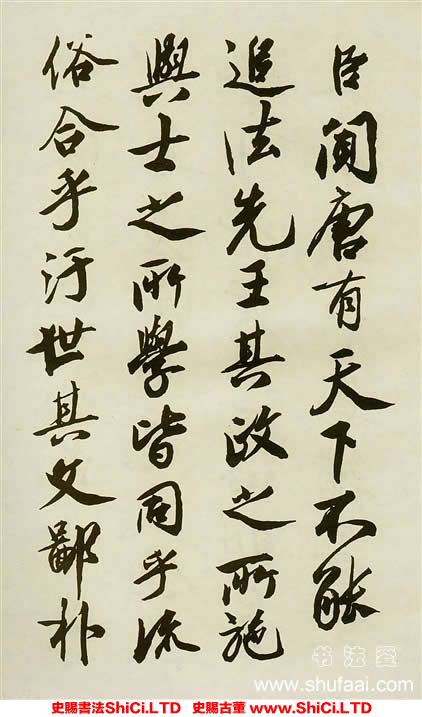 臣聞唐有天下不能
追法先王其政之所施
與士之所學皆同乎流
俗合乎汙世其文鄙朴
书法爱
www.shufaai.com
史賜書法ShiCi.LTD 史賜古董 www.ShiCi.LTD